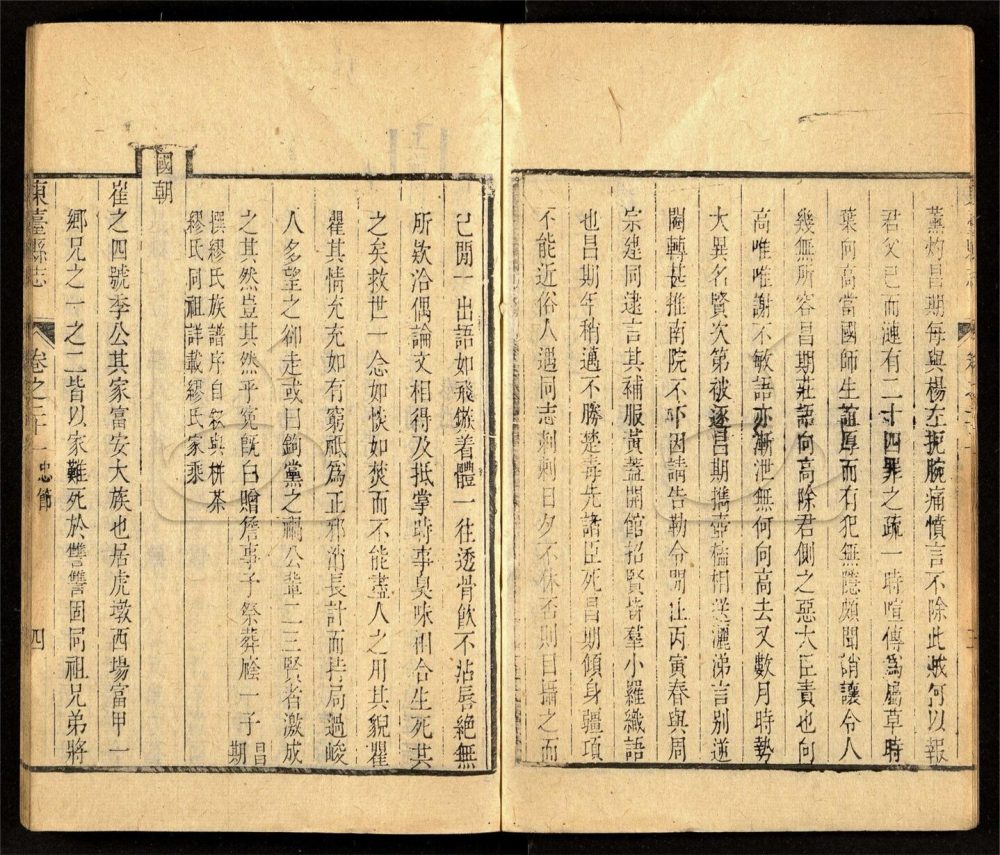 薰灼昌期每與楊左扼腕痛憤言不除此賊何以報
君父已而漣有二十四罪之疏一時喧傳為屬草時
葉向高當國師生誼厚而有犯無隱頗聞誚讓令人
幾無所容昌期莊語向高除君側之惡大臣責也向
高唯唯謝不敏語亦漸泄無何向高去又數月時勢
大異名賢次第被逐昌期攜壺榼相送灑涕言別遂
閹轉甚推南院不下因請告勒令閒住丙寅春與周
宗建同逮言其補服黃蓋開館招賢皆羣小羅織語
也昌期年稍邁不勝楚毒先諸臣死昌期傾身疆項
不能近俗人遇同志剌剌日夕不休否則目攝之而
己閒一出語如飛鏃着體一往透骨飲不沾唇絕無
所欵洽偶論文相得及抵掌時事臭味相合生死共
之矣救世一念如惔如焚而不能盡人之用其貌瞿
瞿其情充充如有窮祗為正邪消長計而持局過峻
人多望之卻走或曰鉤黨之禍公輩二三賢者激成
之其然豈其然乎冤旣白贈詹事予祭葬廕一子
昌期
撰繆氏族譜序自敘與栟茶
繆氏同祖詳載繆氏家乘
國朝
崔之四號李公其家富安大族也居虎墩西場富甲一
鄉兄之一之二皆以家難死於讐讐固同祖兄弟將
東臺縣志
卷之二十一 忠節
四